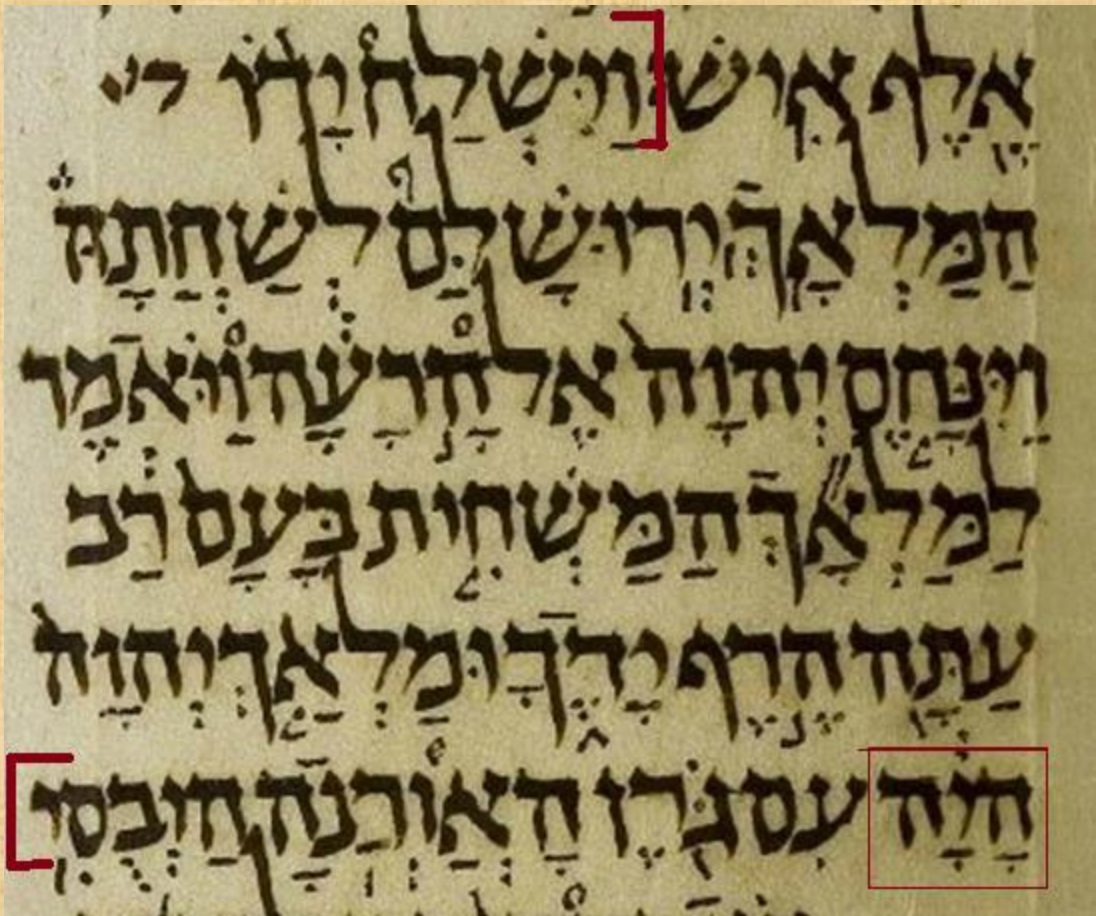 אֶלֶף אִישׁ׃ וַיִּשְׁלַח יָדוֹ
הַמַּלְאָךְ יְרוּשָׁלַ͏ִם לְשַׁחֲתָהּ
וַיִּנָּחֶם יְהוָה אֶל הָרָעָה וַיֹּאמֶר
לַמַּלְאָךְ הַמַּשְׁחִית בָּעָם רַב
עַתָּה הֶרֶף יָדֶךָ וּמַלְאַךְ יְהוָה
הָיָה עִם גֹּרֶן הָאֲוַרְנָה הַיְבֻסִי